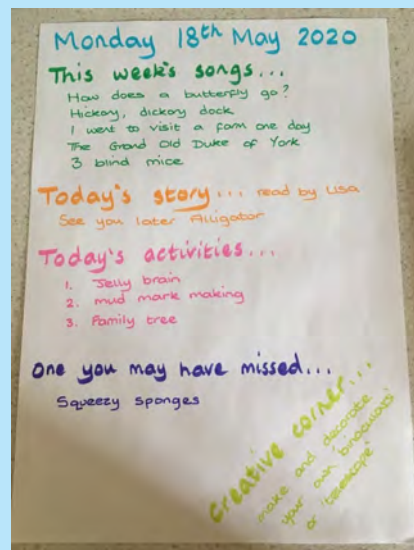 Monday 18th May 2020
This week's songs...
How does a butterfly go?
Hickory, dickory dock
I went to visit a farm one day
The Grand Old Duke of York
3 blind mice
Today's story... read by Lisa
See you later Alligator
Today's activities...
1. Jelly brain
2. mud mark making
3. Family tree
One you may have missed...
Squeezy sponges
Creative corner...
make and decorate
your own 'binoculars'
or 'telescope'